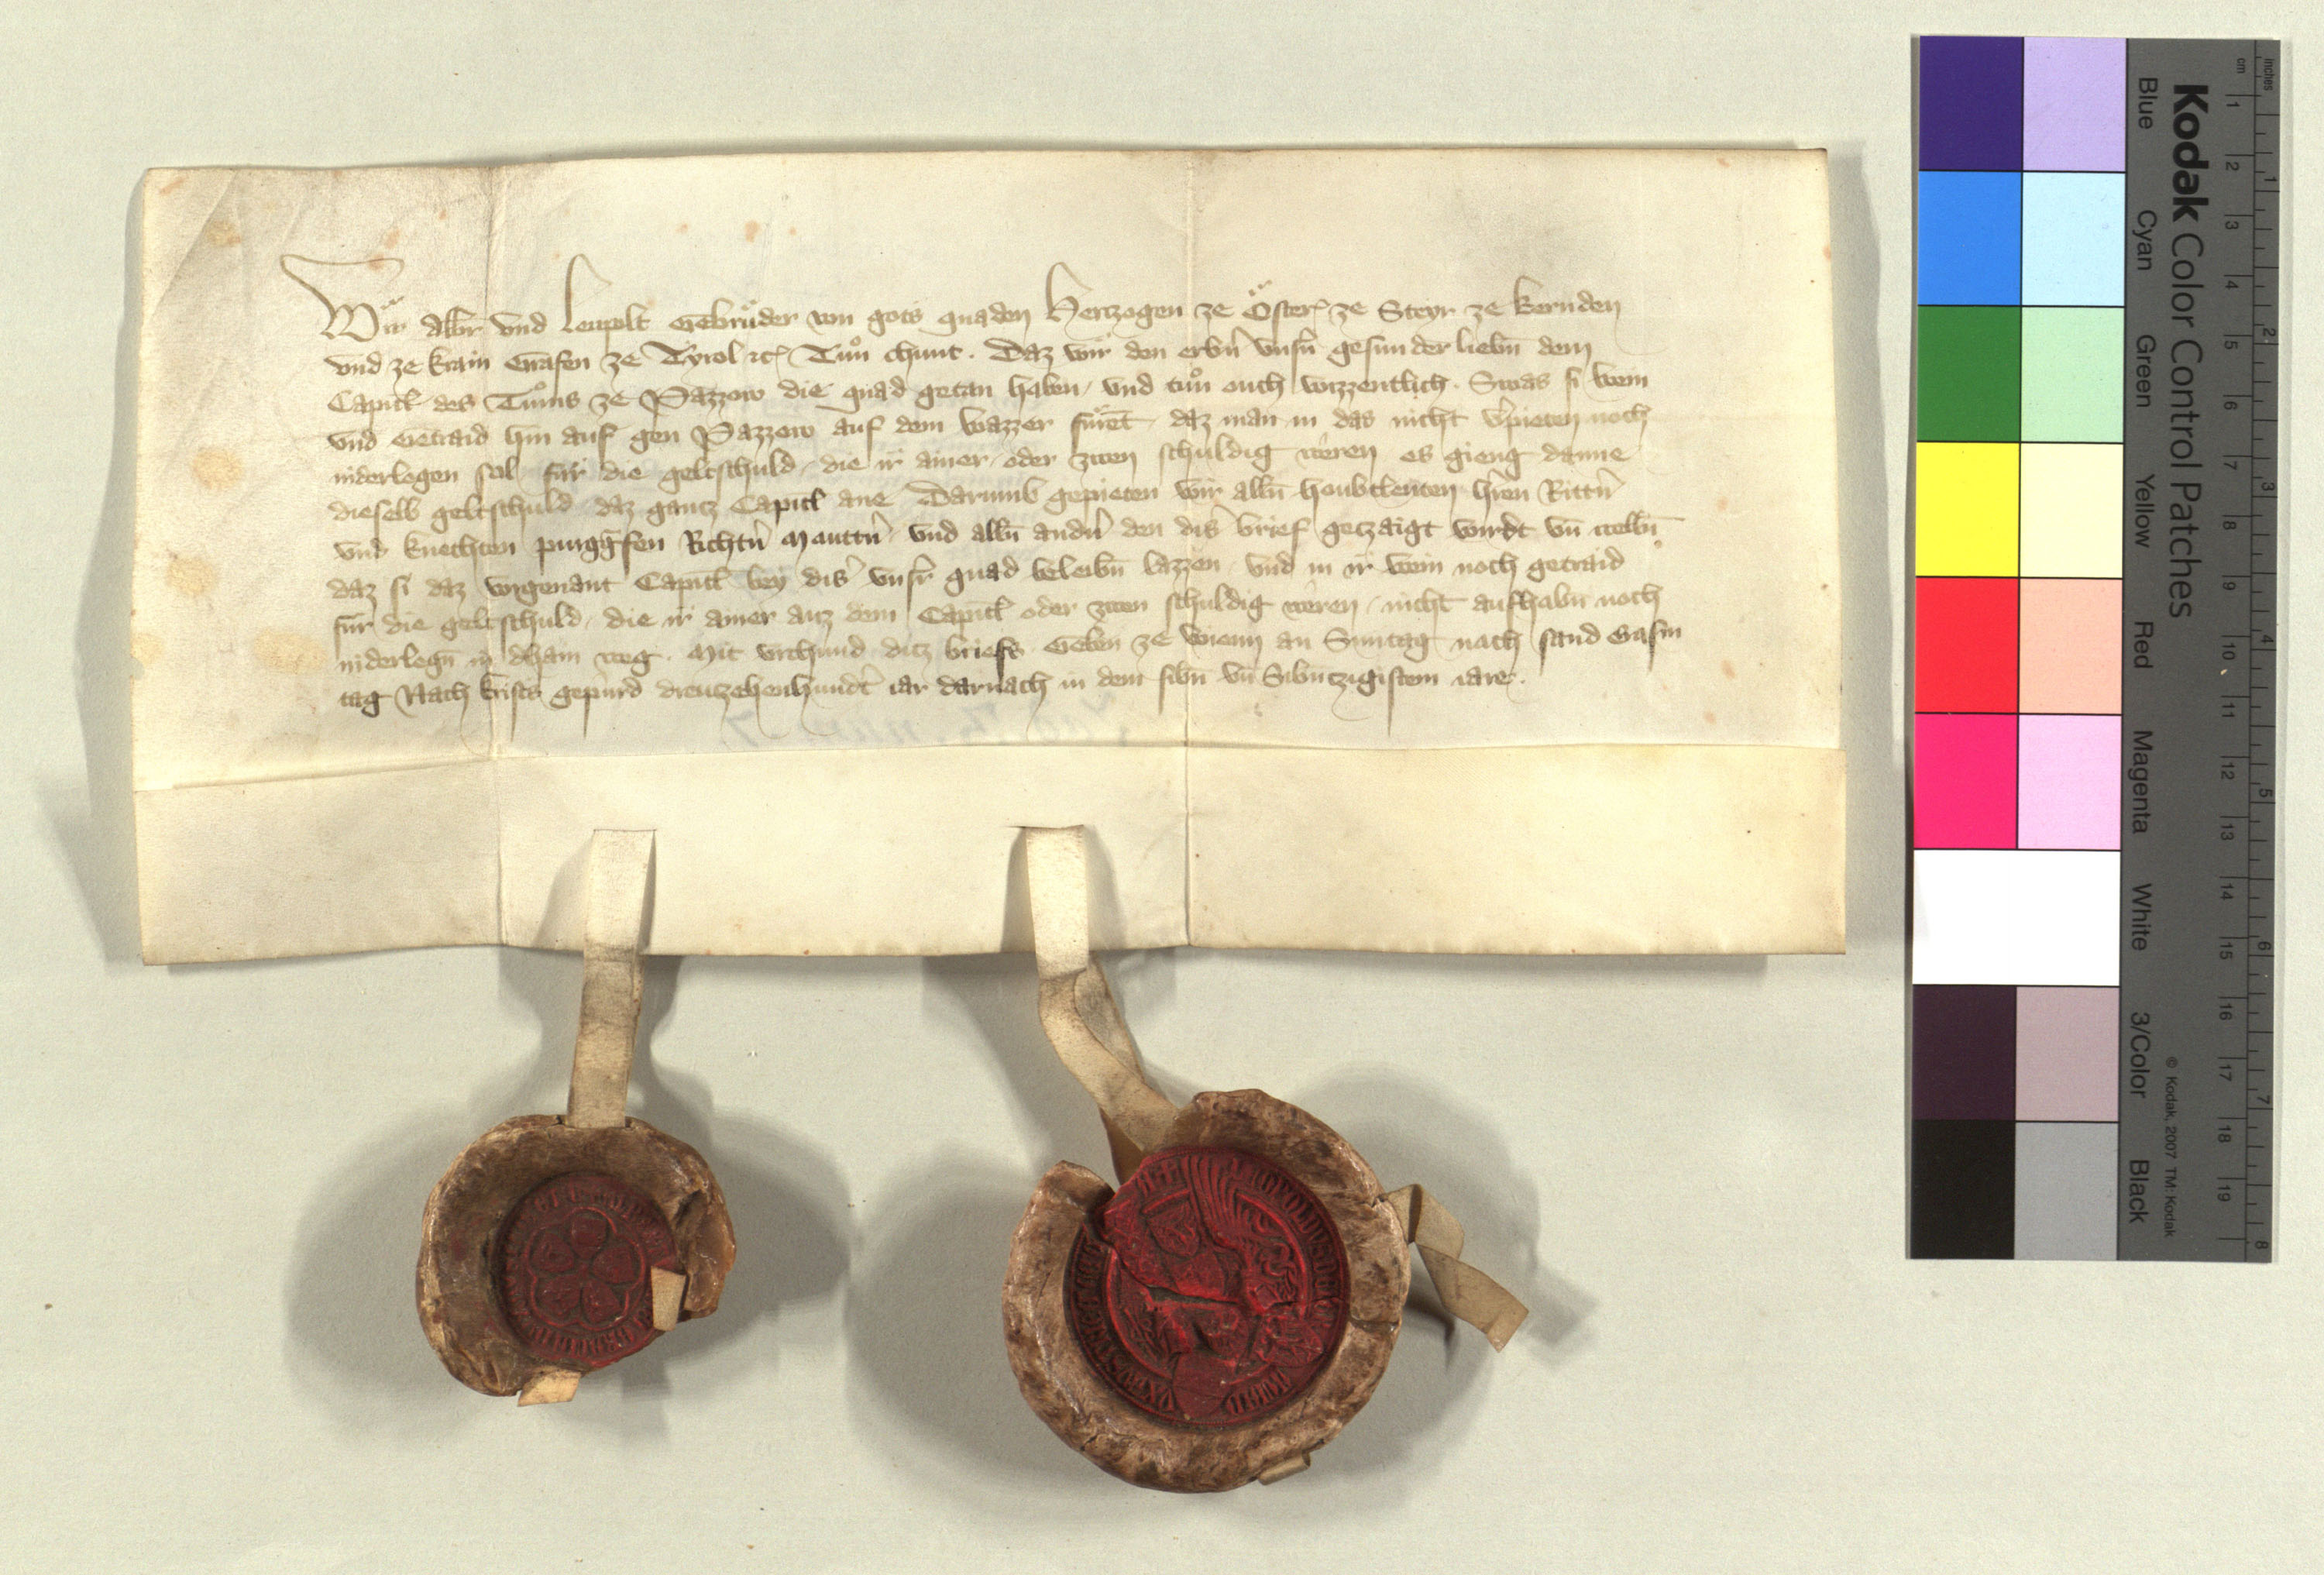 Wir Albr̄ vnd Leupolt Gebrůder von gots gnaden Hertzogen ze Öster̄ ze Steyr ze Kernden
vnd ze Krain Grafen ze Tyrol ꝛc̄ Tůn chunt. Daz wir den erbn̄ vnsn̄ gesunder liebn̄ dem
Capitl des Tůms ze Pazzow die gnad getan haben, vnd tůn ouch wizzentlich. Swas si wein
vnd Getraid hin auf gen Pazzow auf dem wazzer fůrēt, daz man in das nicht v̄pieten noch
niderlegen sol, fur die geltschuld, die ir ainer, oder zwen schuldig weren es gieng danne
dieselb geltschuld daz gantz Capitl ane Darumb gepieten wir alln̄ houbtleuten hr̄en Rittn̄
vnd knechten purggr̄fen Richtn̄ Mauttn̄ vnd alln̄ andn̄ den dis̄ brief getzaigt wirdt vn̄ welln̄
daz si daz vorgenant Capitl bey dis̄ vnsr̄ gnad beleibn̄ lazzen, vnd in ir wein noch getraid
fur die geltschuld, die ir ainer auz dem Capitl oder zwen schuldig weren, nicht aufhabn̄ noch
niderlegn̄ in dhain weg. Mit vrchund ditz briefs Geben ze Wienn an Suntag nach sand
tag Nach krists gepurd dreutzehenhundt̄ iar darnach in dem sibn̄ vn̄ Sibntzigistem iare.
Kodak Color Control Patches
Blue Cyan Green Yellow Red Magenta White 3/Color Black
© Kodak, 2007 TM: Kodak
cm 1 2 3 4 5 6 7 8 9 10 11 12 13 14 15 16 17 18 19
inches 1 2 3 4 5 6 7 8